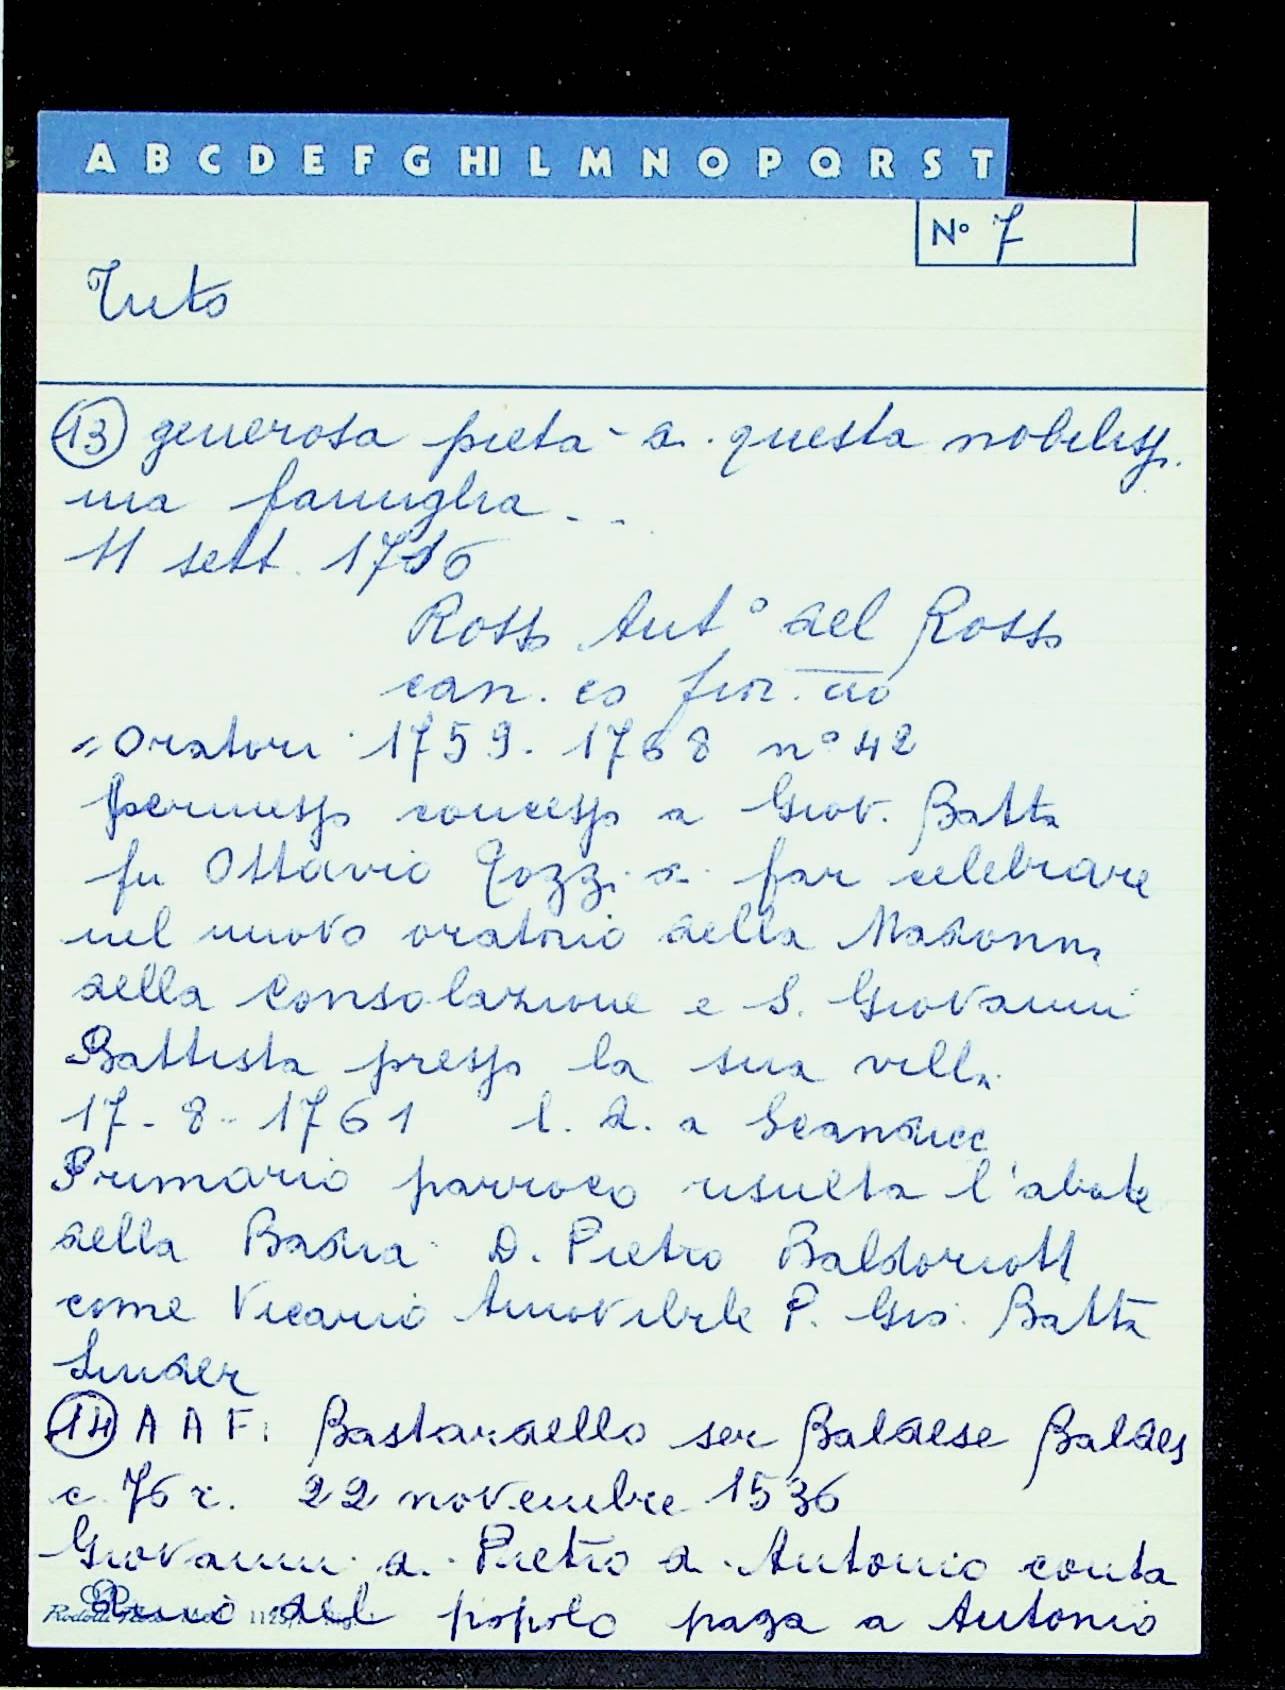 A B C D E F G HI L M N O P Q R S T
N° 7
Tuto
13 generosa pietà di questa nobiliss.
ma famiglia - -
11 sett. 1716
Rosso Ant° del Rosso
can. co fior. no
= Oratori 1759. 1768 n° 42
permesso concesso a Giov. Batta
fu Ottavio Gozzi di far celebrare
nel nuovo oratorio della Madonna
della Consolazione e S. Giovanni
Battista presso la sua villa
17-8-1761 l. d. a Scandicci
Primario parroco risulta l'abate
della Badia D. Pietro Baldoriotti
come Vicario Amovibile P. Gio: Batta
Linder
14 A A F: Bastardello ser Baldese Baldesi
c. 76 r. 22 novembre 1536
Giovanni di Pietro di Antonio conta
del popolo paga a Antonio